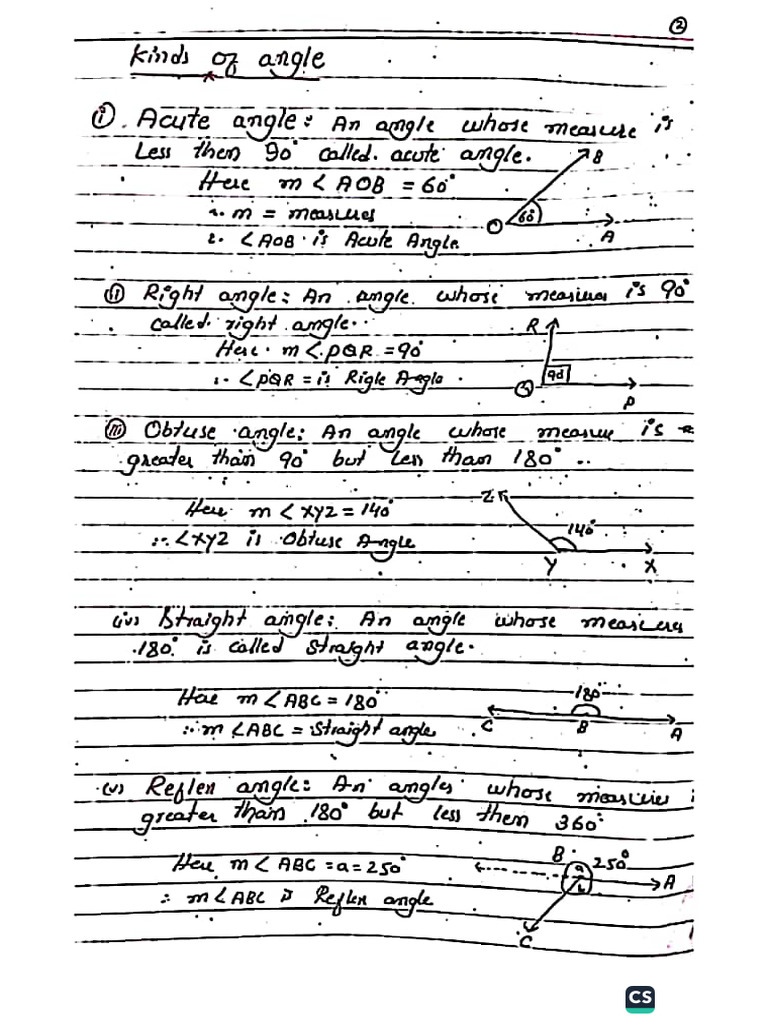 ②
Kinds of angle
(i). Acute angle: An angle whose measure is
Less then 90° called. acute angle.
B
Here m < AOB = 60°
∴ m = measures
O 60° A
∴ <AOB is Acute Angle
(ii) Right angle: An angle whose measures is 90°
called right angle.
R
Here m <PQR = 90°
∴ <PQR = is Rigle Angle
Q 90° P
(iii) Obtuse angle: An angle whose measure is
greater than 90° but less than 180°
Z
Here m < XYZ = 140°
140°
∴ <XYZ is Obtuse Angle
Y X
(iv) Straight angle: An angle whose measures
180° is called straight angle.
180°
Here m <ABC = 180°
C B A
∴ m <ABC = Straight angle
(v) Reflen angle: An angles whose measures i
greater than 180° but less them 360°
B a 250°
Here m < ABC = a = 250°
b A
∴ m <ABC is Reflen angle
C
CS